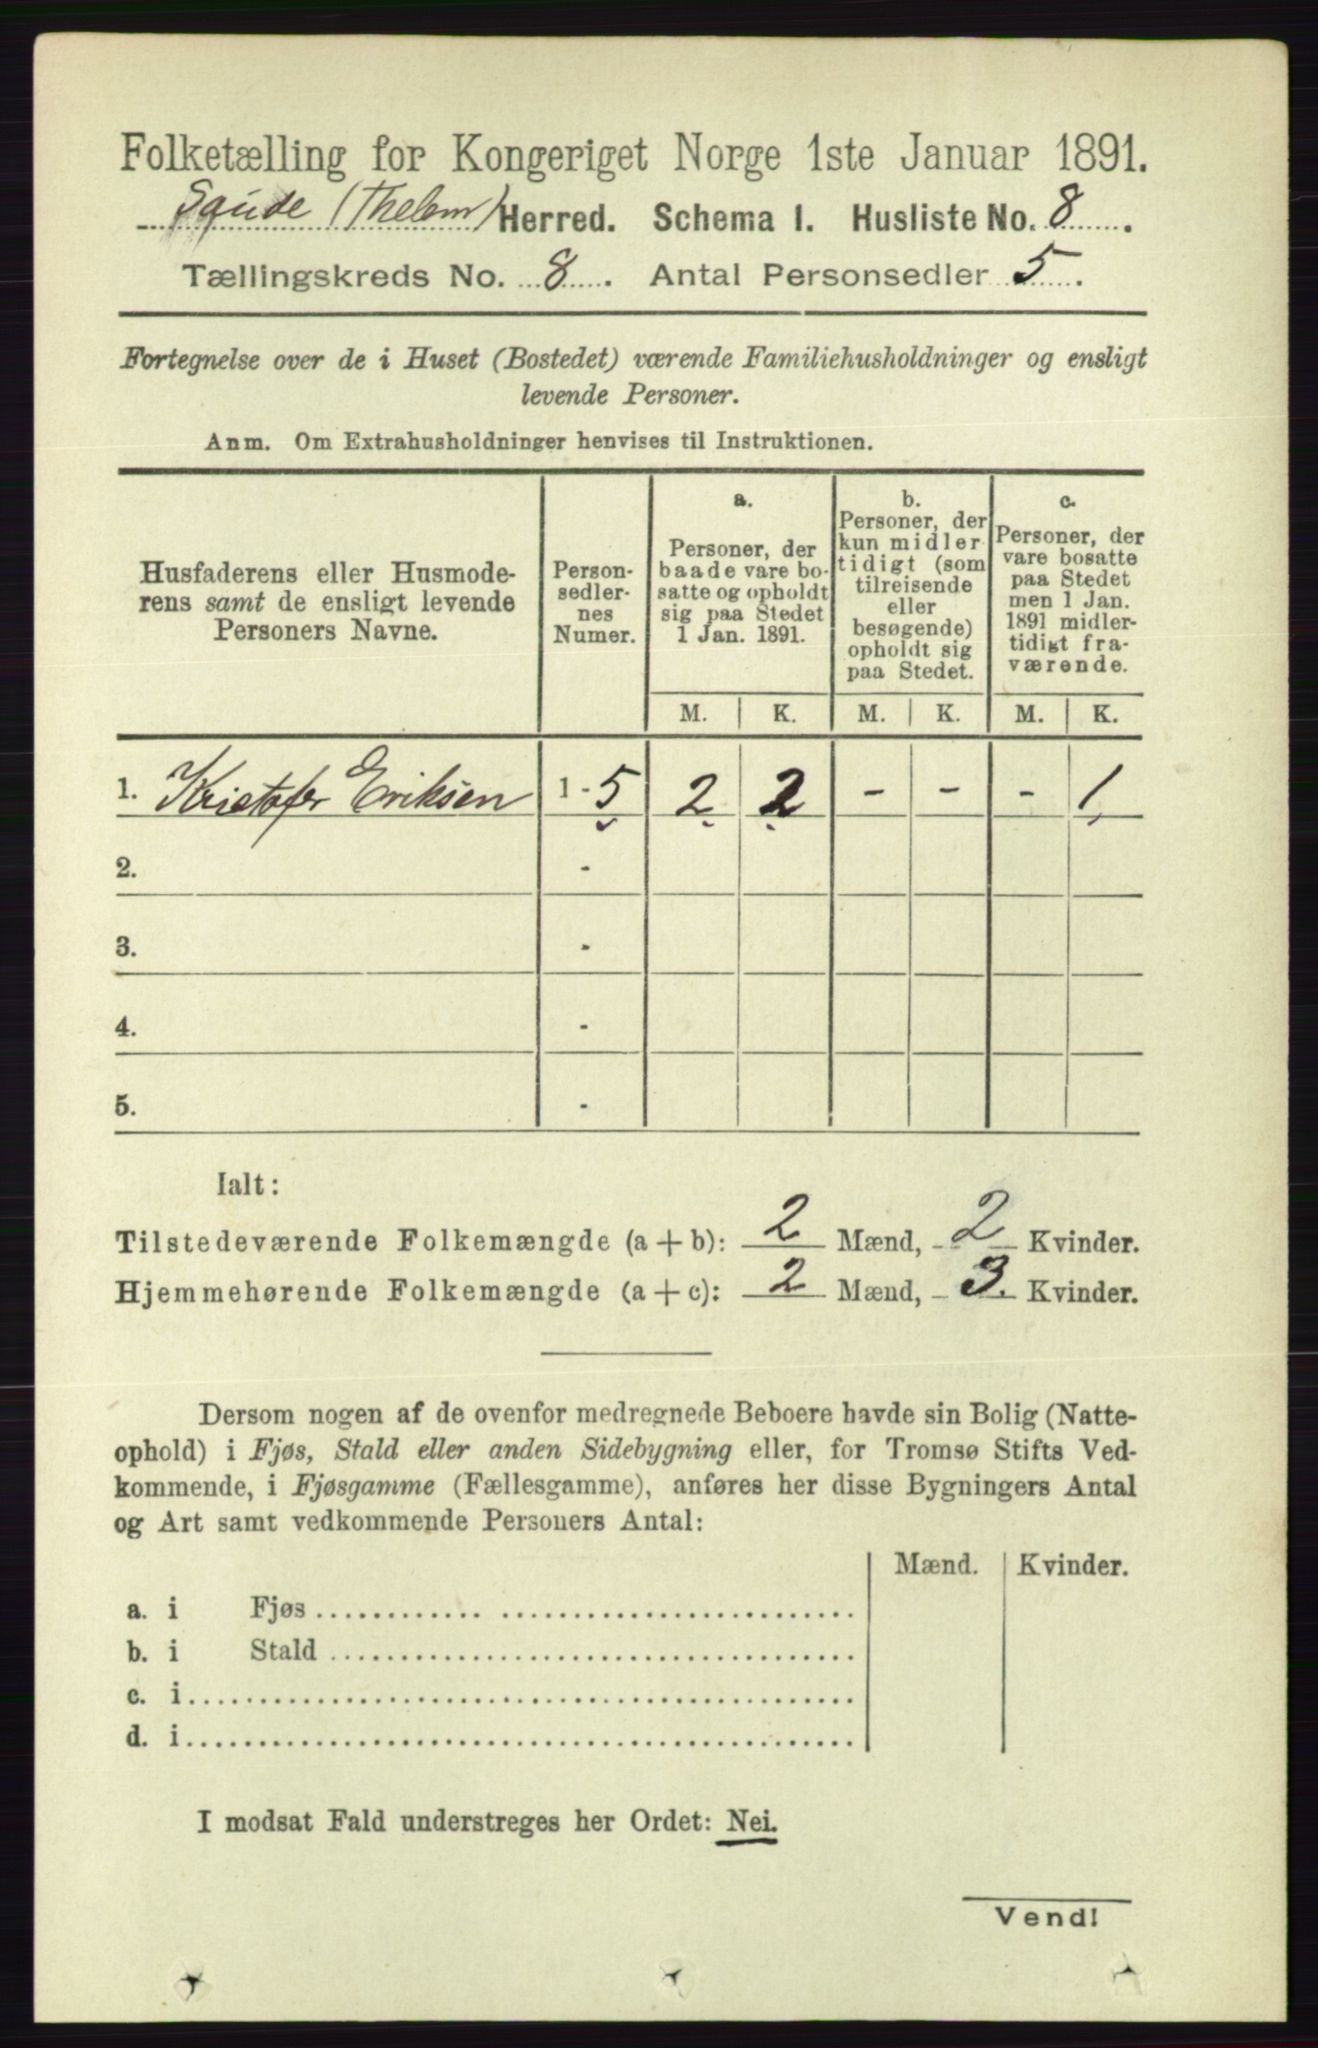 Folketælling for Kongeriget Norge 1ste Januar 1891.
Saude (Thelem) Herred. Schema I. Husliste No. 8.
Tællingskreds No. 8. Antal Personsedler 5.
Fortegnelse over de i Huset (Bostedet) værende Familiehusholdninger og ensligt
levende Personer.
Anm. Om Extrahusholdninger henvises til Instruktionen.
Husfaderens eller Husmode-
rens samt de ensligt levende
Personers Navne.
Person-
sedler-
nes
Numer.
a.
Personer, der
baade vare bo-
satte og opholdt
sig paa Stedet
1 Jan. 1891.
b.
Personer, der
kun midler-
tidigt (som
tilreisende
eller
besøgende)
opholdt sig
paa Stedet.
c.
Personer, der
vare bosatte
paa Stedet
men 1 Jan.
1891 midler-
tidigt fra-
værende.
M. K. M. K. M. K.
1. Kristofer Eriksen 1 - 5 2 2 - - - 1
2. -
3. -
4. -
5. -
Ialt:
Tilstedeværende Folkemængde (a + b): 2 Mænd, 2 Kvinder.
Hjemmehørende Folkemængde (a + c): 2 Mænd, 3 Kvinder.
Dersom nogen af de ovenfor medregnede Beboere havde sin Bolig (Natte-
ophold) i Fjøs, Stald eller anden Sidebygning eller, for Tromsø Stifts Ved-
kommende, i Fjøsgamme (Fællesgamme), anføres her disse Bygningers Antal
og Art samt vedkommende Personers Antal:
Mænd. Kvinder.
a. i Fjøs
b. i Stald
c. i
d. i
I modsat Fald understreges her Ordet: Nei.
Vend!